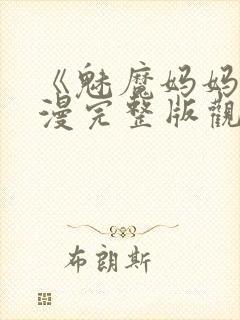 《魅魔妈妈
漫完整版觀
布朗斯